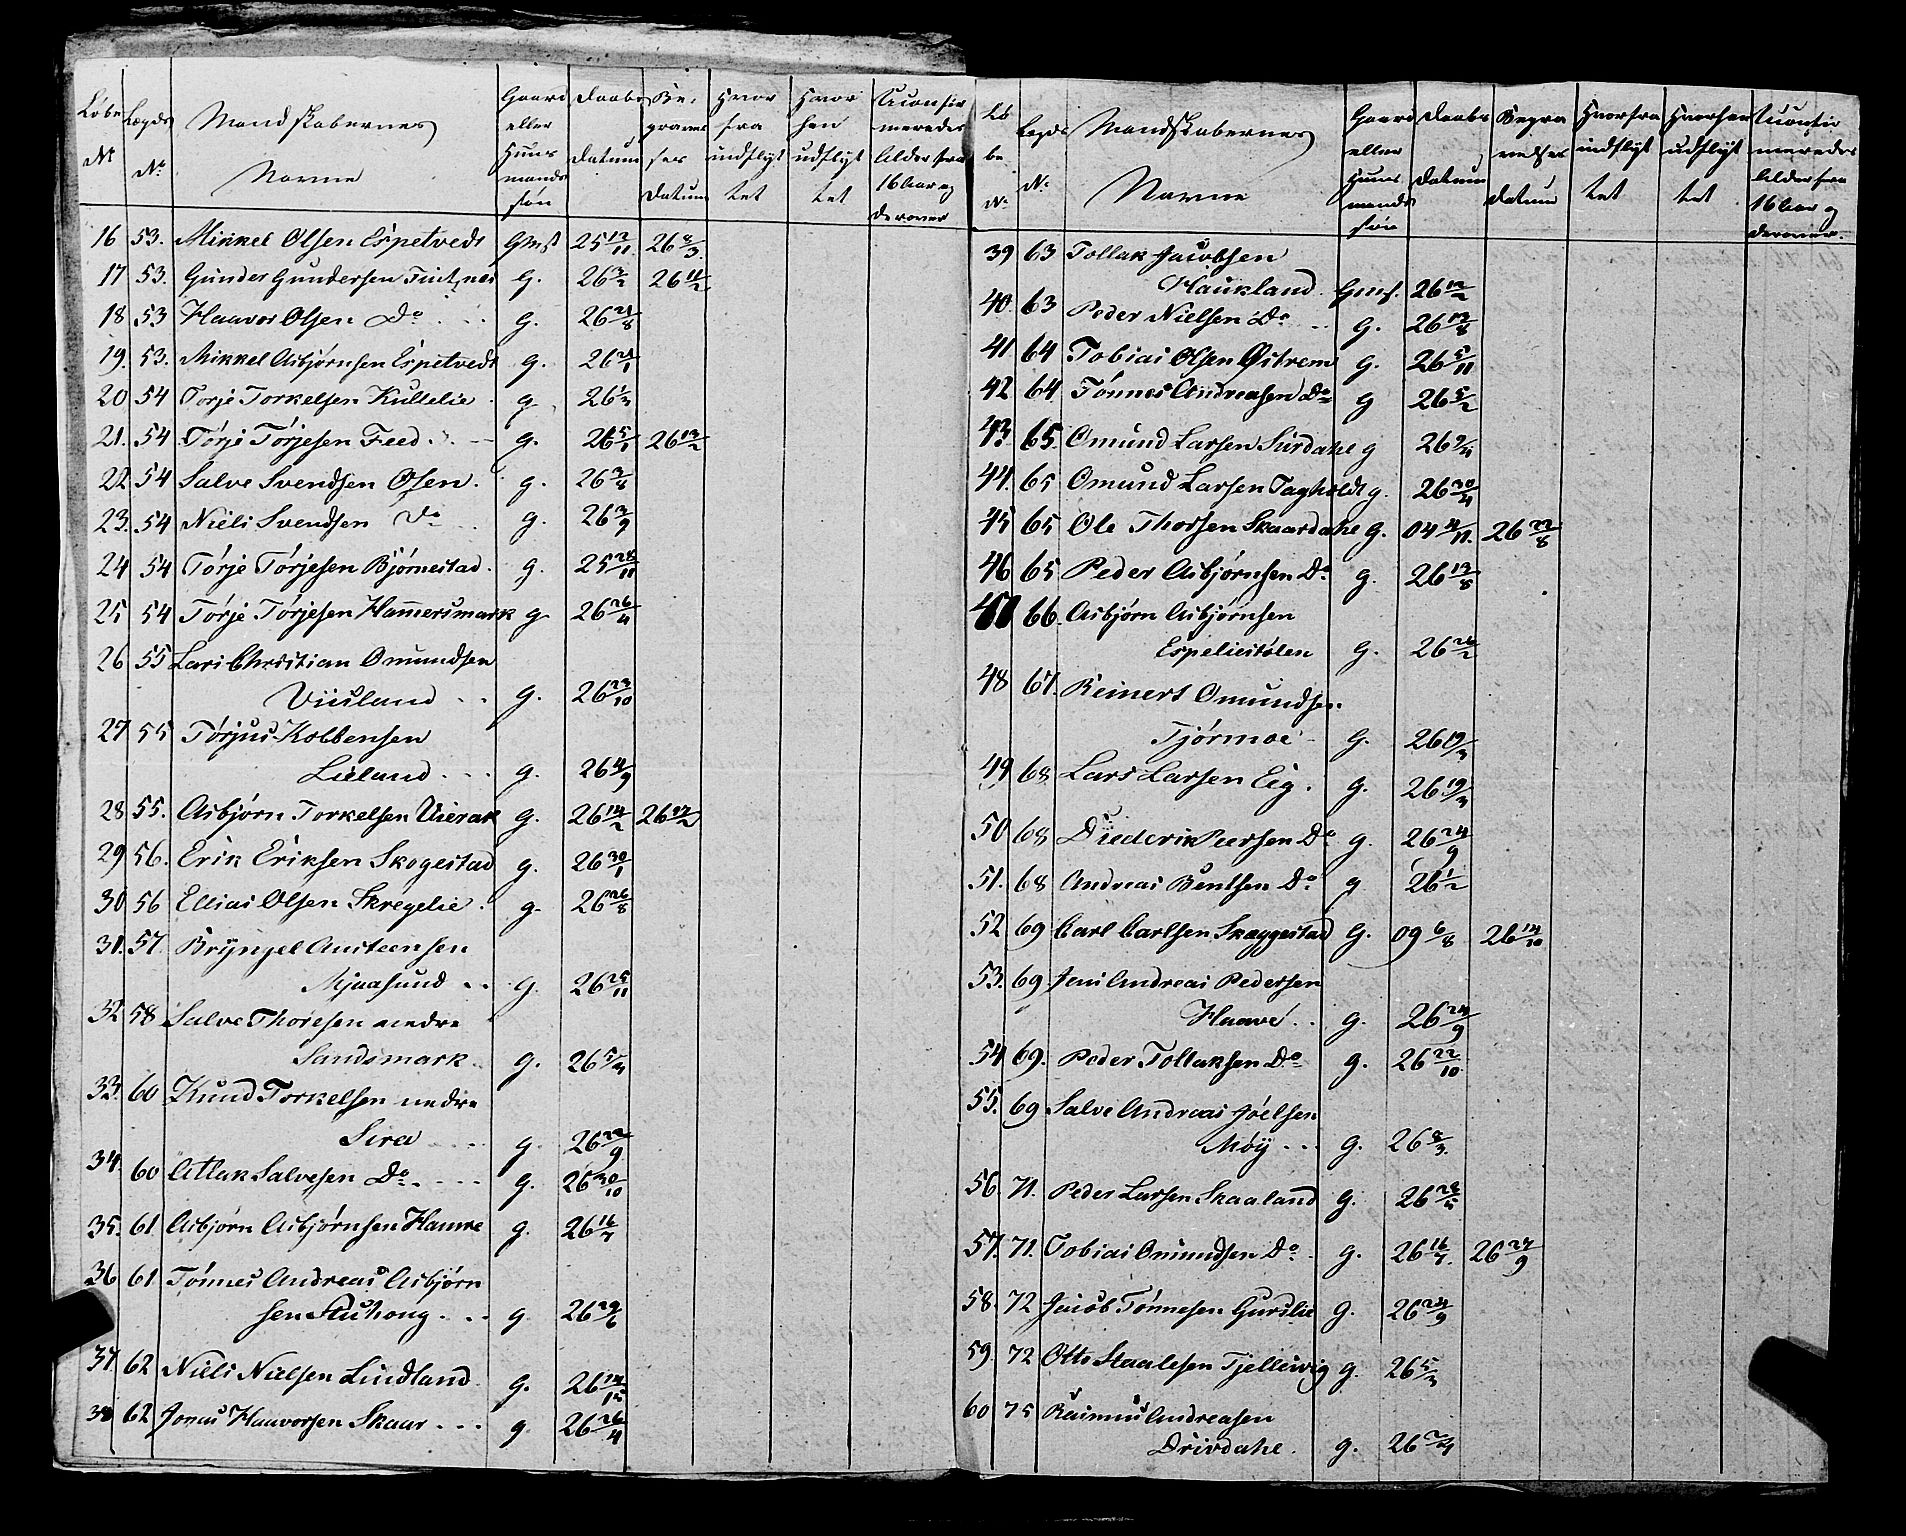 Løbe Lægds Mandskabernes Gaard Daabs Be- Hvor Hvor Uconfir
eller gravel fra hen meredes
Nt Huus Datum ses indflyt udflyt Alder fra
No Navne mands Datum tet tet 16 Aar og
søn Derover
16 53. Mikkel Olsen Espetvedt Gmst 25 12/11 26 8/3
17 53. Gunder Gundersen g. 26 3/2 26 11/2
18 53 Haavor Olsen Do g. 26 21/8
19. 53. Mikkel Asbjørnsen Espetvedt g. 26 21/1
20 54 Torje Torkelsen Kullelie g 26 1/3
21. 54 Tørje Tørjesen Feed g. 26 5/1 26 13/2
22 54 Salve Svendsen Osen. g. 26 3/8
23. 54 Niels Svendsen Do g. 26 3/9
24 54 Tørje Tørjesen Bjørnestad. g. 25 28/11
25 54 Tørje Tørjesen Hamersmark g 26 26/4
26 55 Lars Christian Omundsen
Viisland g. 26 23/10
27 55 Tørjus Kolbensen
Lieland g. 26 4/9
28 55. Asbjørn Torkelsen Uierak g. 26 14/2 26 27/2
29 56. Erik Eriksen Skogestad g. 26 30/1
30 56 Ellias Olsen Skregelie g. 26 26/8
31. 57 Bryngel Austeensen
Mjaasund g. 26 25/11
32 58 Salve Thoresen nedre
Sandsmark g. 26 5/3
33. 60 Knud Torkelsen nedre
Sira g. 26 22/9
34. 60 Atlak Salvesen Do g. 26 30/10
35. 61 Asbjørn Asbjørnsen Hamre g. 26 16/7
36 61 Tønnes Andreas Asbjørn
sen g. 26 29/6
37 62 Niels Nielsen Lindland g. 26 14/12
38 62 Jonas Haavorsen Skaar g. 26 26/4
Lø Lægds Mandskabernes Gaard Daabs Begra Hvorfra Hvorhen Uconfir
be eller velses indflyt udflyt meredes
No No Navne Huus Datum Datum tet tet Alder fra
mands 16 Aar og
søn derover.
39 63 Tollak Jacobsen
Haukland Gms. 26 12/2
40. 63 Peder Nielsen Do g. 26 13/8
41 64 Tobias Olsen Østrem g. 26 5/11
42 64 Tønnes Andreasen Do g 26 5/2
43 65. Omund Larsen Surdahe g 26 9/4
44. 65 Omund Larsen Tagholdt g. 26 30/4
45 65 Ole Thorsen Skaardahe g. 04 4/11. 26 22/8
46 65 Peder Asbjørnsen Do g. 26 13/8
47 66. Asbjørn Asbjørnsen
Espeliestølen g. 26 26/2
48 67. Reinert Omundsen
Tjørmoe g. 26 19/3
49 68 Lars Larsen Eig. g. 26 19/3
50 68 Diederik Peersen Do g. 26 24/9
51. 68 Andreas Bentsen Do g 26 1/2
52 69 Carl Carlsen Skaggestad g. 09 6/8 26 14/10
53. 69 Jens Andreas Pedersen
Haave g. 26 24/9
54 69. Peder Tollaksen Do g. 26 22/10
55. 69 Salve Andreas Joelsen
Møy g. 26 8/3
56. 71. Peder Larsen Skaaland g. 26 28/5
57. 71. Tobias Omundsen Do g. 26 16/7 26 27/9
58. 72 Jacob Tønnesen Gurslie g. 26 24/9
59. 72 Otto Staalesen Tjellesvig g. 26 5/3
60 75 Rasmus Andreasen
Drivdahe. g. 26 2/4